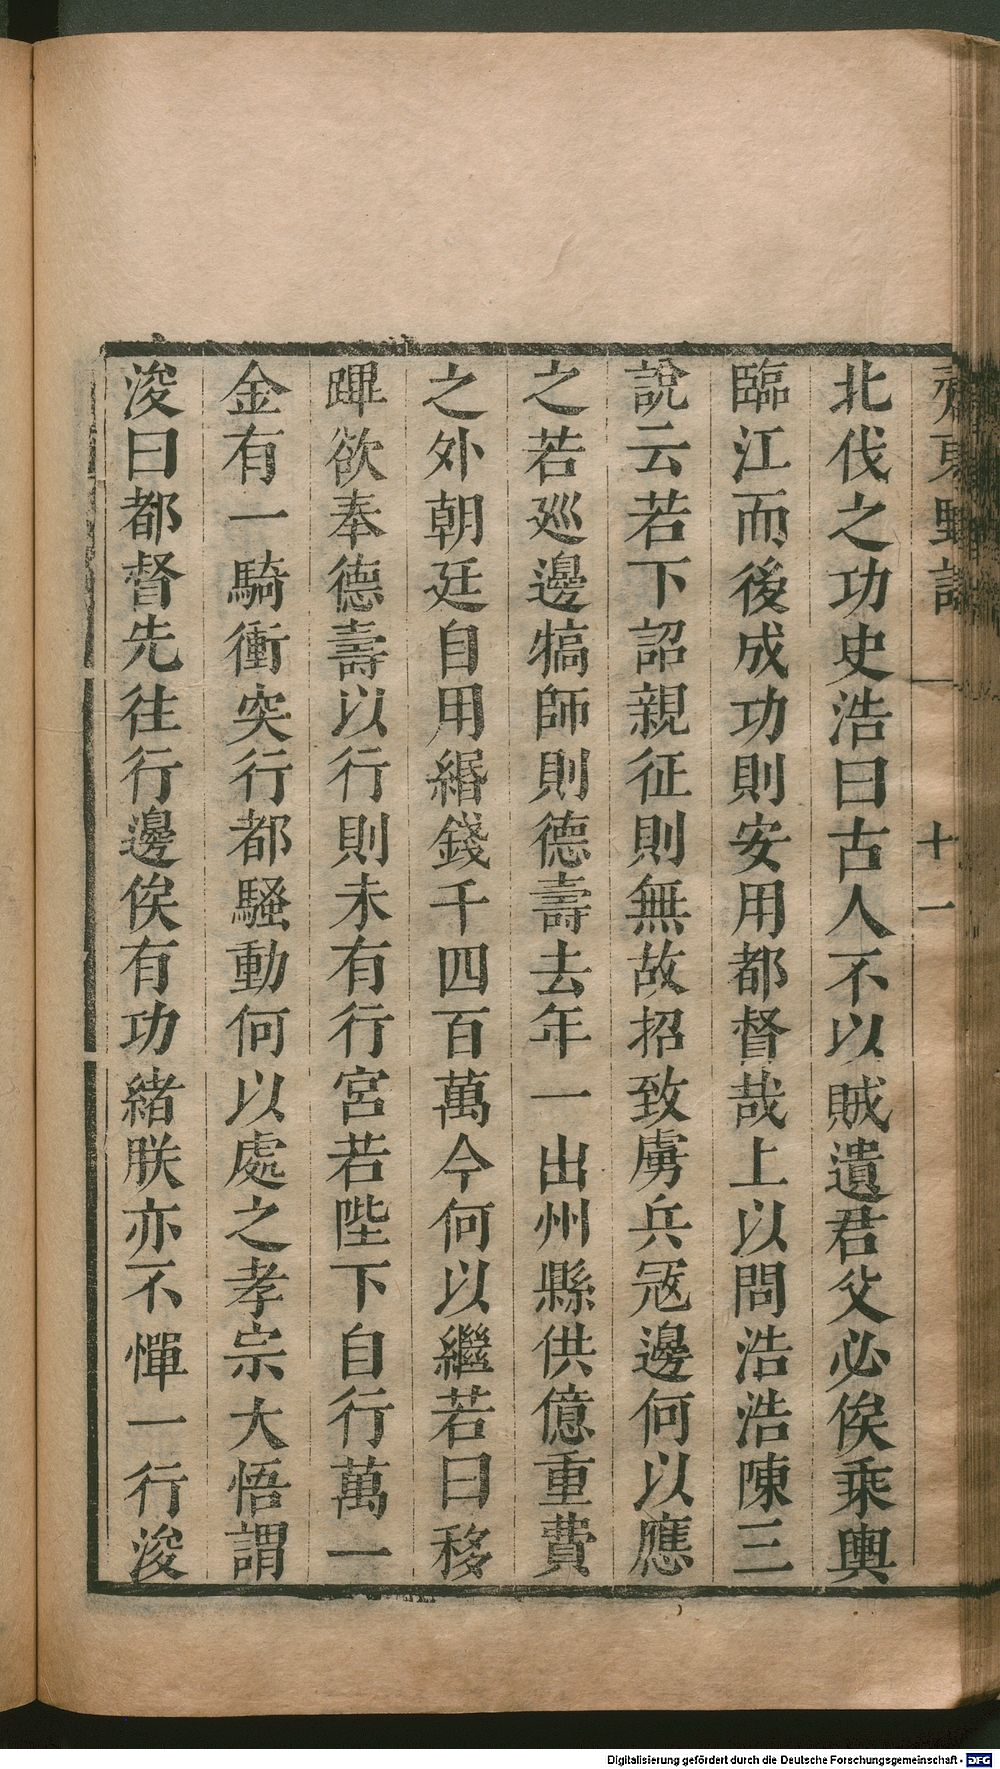 齊東野語
十一
北伐之功史浩曰古人不以賊遺君父必俟乘輿
臨江而後成功則安用都督哉上以問浩浩陳三
說云若下詔親征則無故招致虜兵冦邊何以應
之若廵邊犒師則德壽去年一出州縣供億重費
之外朝廷自用緡錢千四百萬今何以繼若曰移
蹕欲奉德壽以行則未有行宮若陛下自行萬一
金有一騎衝突行都騷動何以處之孝宗大悟謂
浚曰都督先往行邊俟有功緒朕亦不憚一行浚
Digitalisierung gefördert durch die Deutsche Forschungsgemeinschaft - DFG